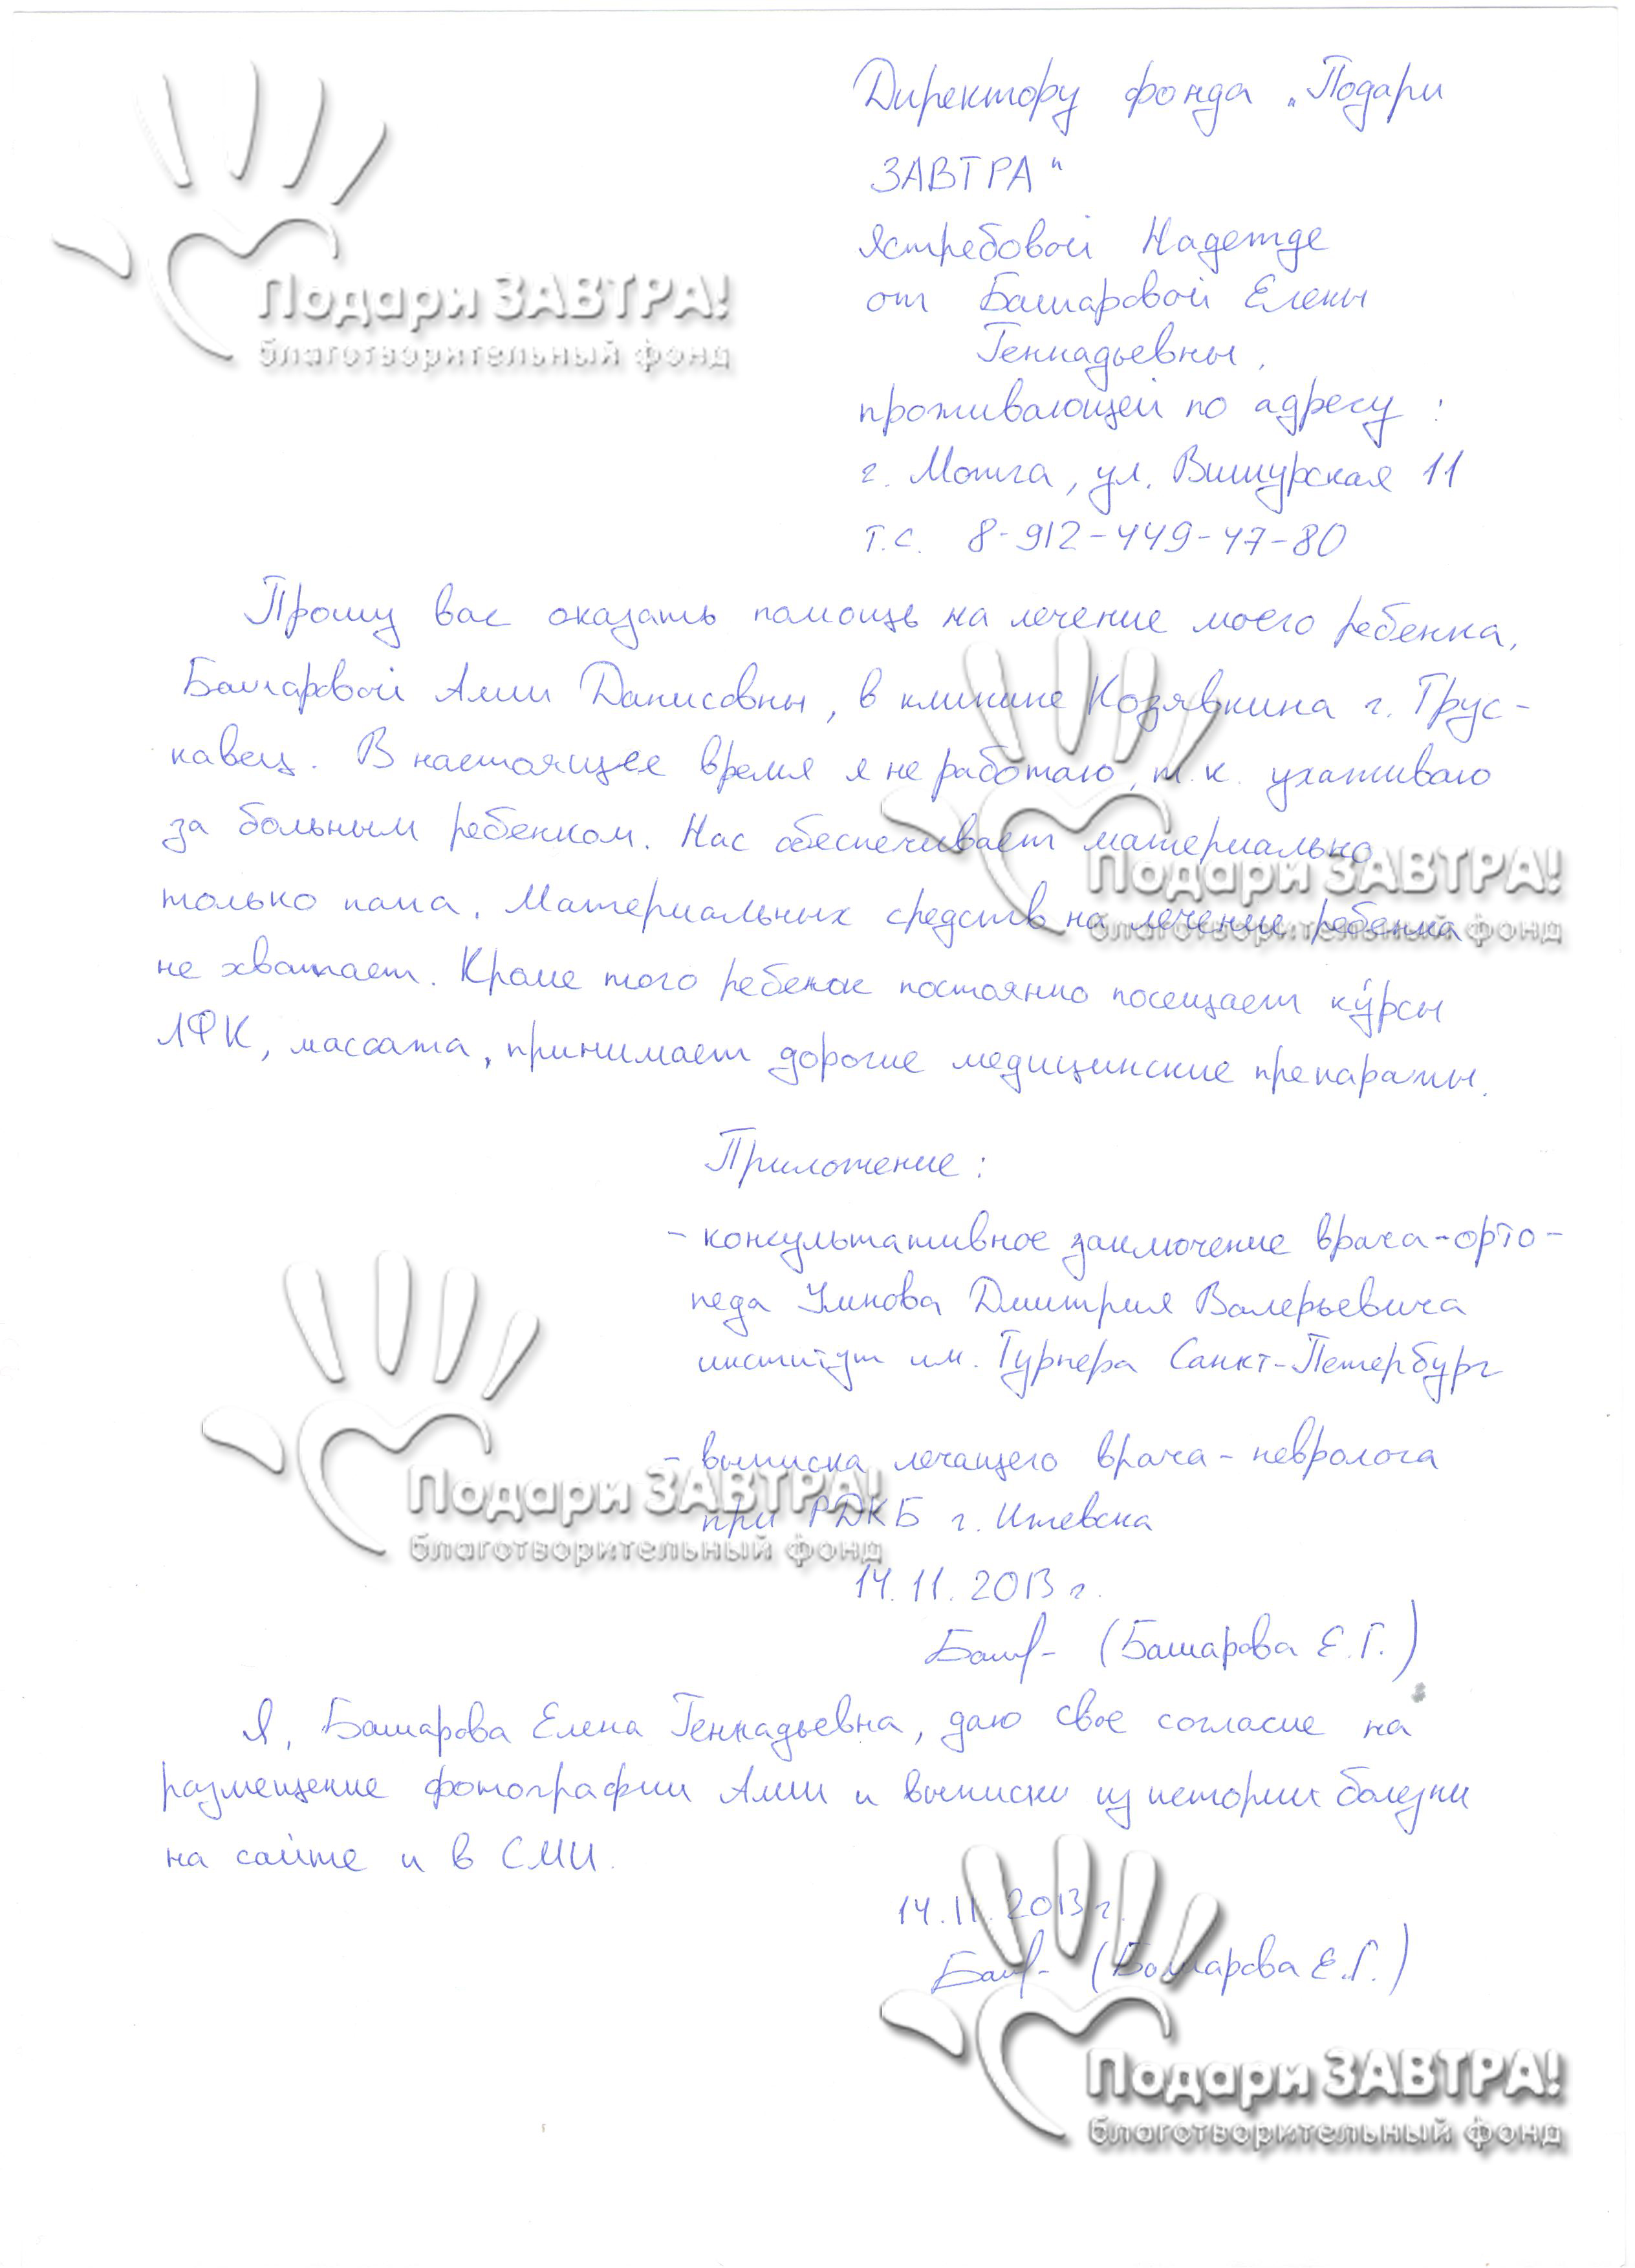 Директору фонда „Подари
ЗАВТРА"
Ястребовой Надежде
от Башаровой Елены
Геннадьевны,
проживающей по адресу:
г. Можга, ул. Вишурская 11
т.с. 8-912-449-47-80
Подари ЗАВТРА!
благотворительный фонд
Прошу вас оказать помощь на лечение моего ребенка,
Башаровой Алии Данисовны, в клинике Козявкина г. Трус-
кавец. В настоящее время я не работаю, т.к. ухаживаю
за больным ребенком. Нас обеспечивает материально
только папа. Материальных средств на лечение ребенка
не хватает. Кроме того ребенок постоянно посещает курсы
ЛФК, массажа, принимает дорогие медицинские препараты.
Подари ЗАВТРА!
благотворительный фонд
Приложение:
- консультативное заключение врача-орто-
педа Умнова Дмитрия Валерьевича
институт им. Турнера Санкт-Петербург
- выписка лечащего врача-невролога
при РДКБ г. Ижевска
Подари ЗАВТРА!
благотворительный фонд
14.11.2013 г.
Баш- (Башарова Е.Г.)
Я, Башарова Елена Геннадьевна, даю свое согласие на
размещение фотографии Алии и выписки из истории болезни
на сайте и в СМИ.
14.11.2013 г.
Баш- (Башарова Е.Г.)
Подари ЗАВТРА!
благотворительный фонд